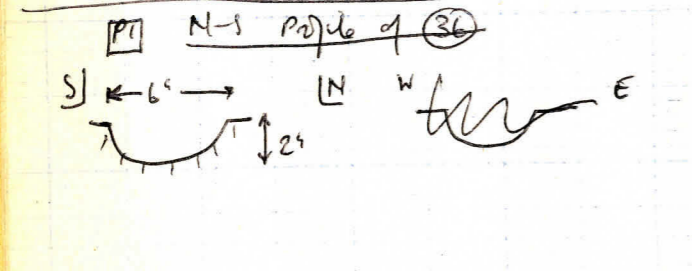 P1 N-S Profile of 36
S 6" N W E
2"